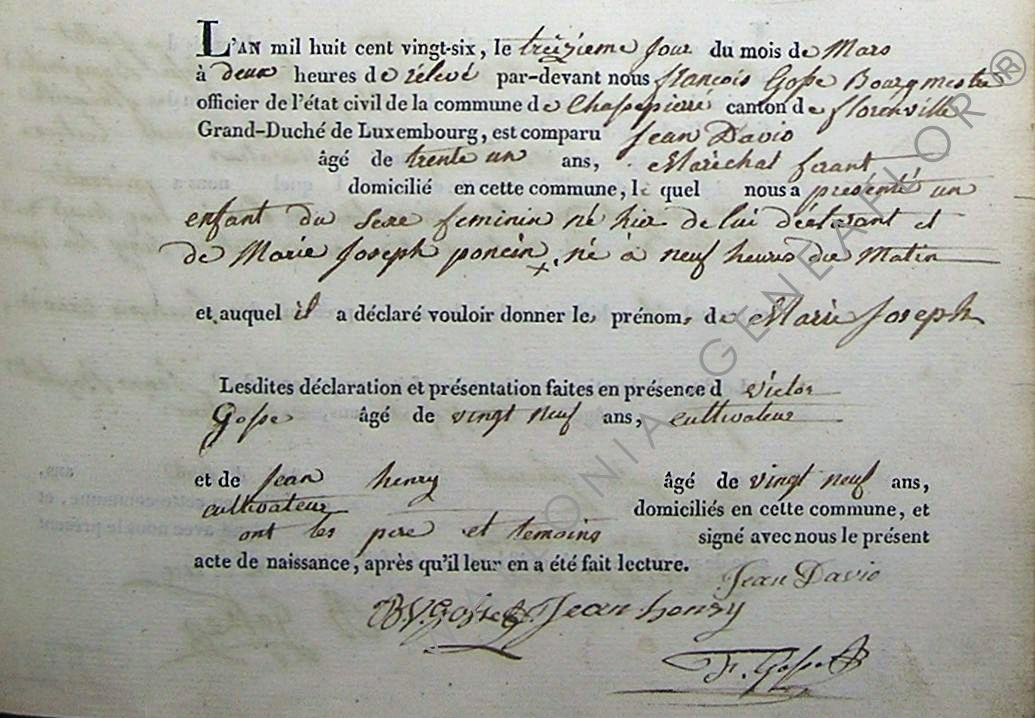 L'AN mil huit cent vingt-six, le treizieme Jour du mois de Mars
à deux heures de rélevé par-devant nous francois Gosse Bourgmestre
officier de l'état civil de la commune de Chassepierre canton de florenville
Grand-Duché de Luxembourg, est comparu Jean David
âgé de trente un ans, Maréchal ferant
domicilié en cette commune, le quel nous a présenté un
enfant du sexe feminin né hier de lui déclarant et
de Marie Joseph poncin, né à neuf heures du Matin
et auquel il a déclaré vouloir donner les prénoms de Marie Joseph
Lesdites déclaration et présentation faites en présence d victor
Gosse âgé de vingt neuf ans, cultivateur
et de Jean henry âgé de vingt neuf ans,
cultivateur domiciliés en cette commune, et
ont les pere et temoins signé avec nous le présent
acte de naissance, après qu'il leur en a été fait lecture.
Jean David
V. Gosse Jean henry
F. Gosse
GENEAPHOR ®